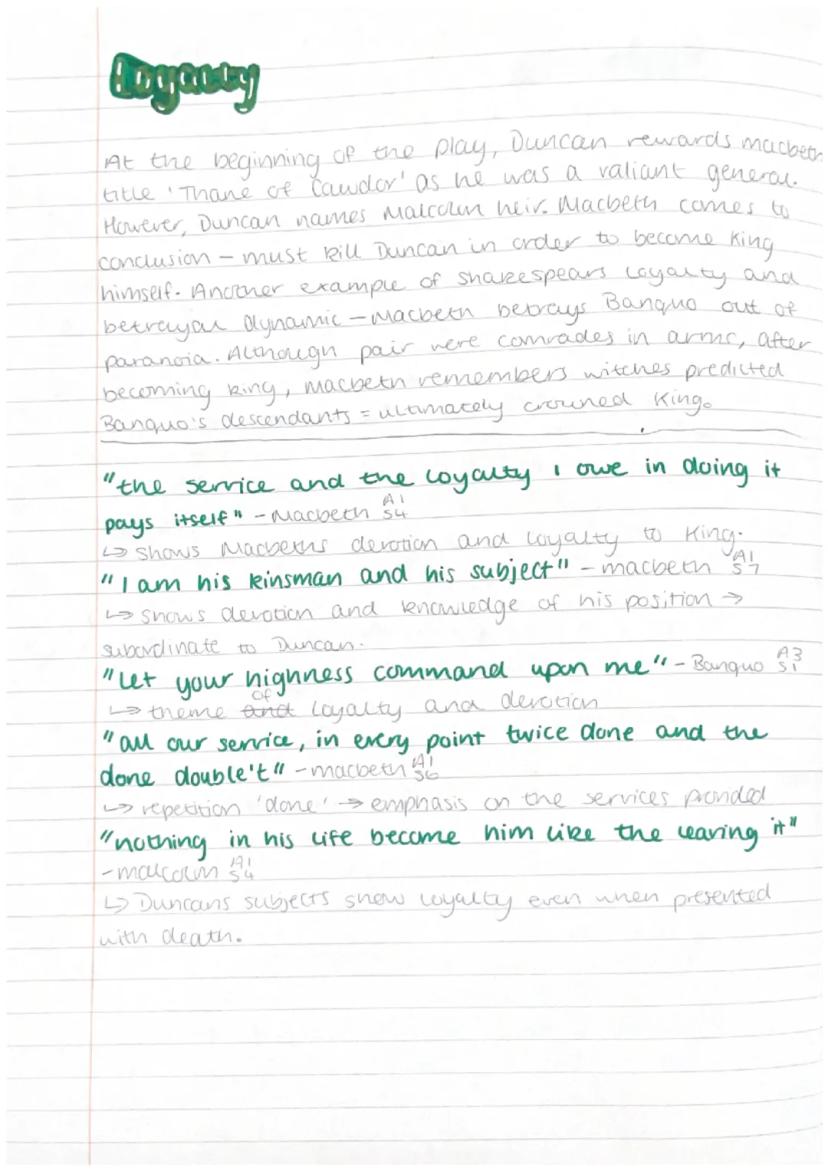 Loyalty
At the beginning of the play, Duncan rewards macbeth
title 'Thane of Cawdor' as he was a valiant general.
However, Duncan names Malcolm heir. Macbeth comes to
conclusion – must kill Duncan in order to become King
himself. Another example of shakespears loyalty and
betrayal dynamic – Macbeth betrays Banquo out of
paranoia. Although pair were comrades in arms, after
becoming king, Macbeth remembers witches predicted
Banquo's descendants = ultimately crowned King.
"the service and the loyalty I owe in doing it
pays itself" – Macbeth A1 S4
↳ shows Macbeths devotion and loyalty to King.
"I am his kinsman and his subject" – macbeth A1 S7
↳ shows devotion and knowledge of his position →
subordinate to Duncan.
"Let your highness command upon me" – Banquo A3 S1
↳ theme and of loyalty and devotion
"all our service, in every point twice done and the
done double't" – macbeth A1 S6
↳ repetition 'done' → emphasis on the services provided
"nothing in his life become him like the leaving it"
– malcolm A1 S4
↳ Duncans subjects show loyalty even when presented
with death.